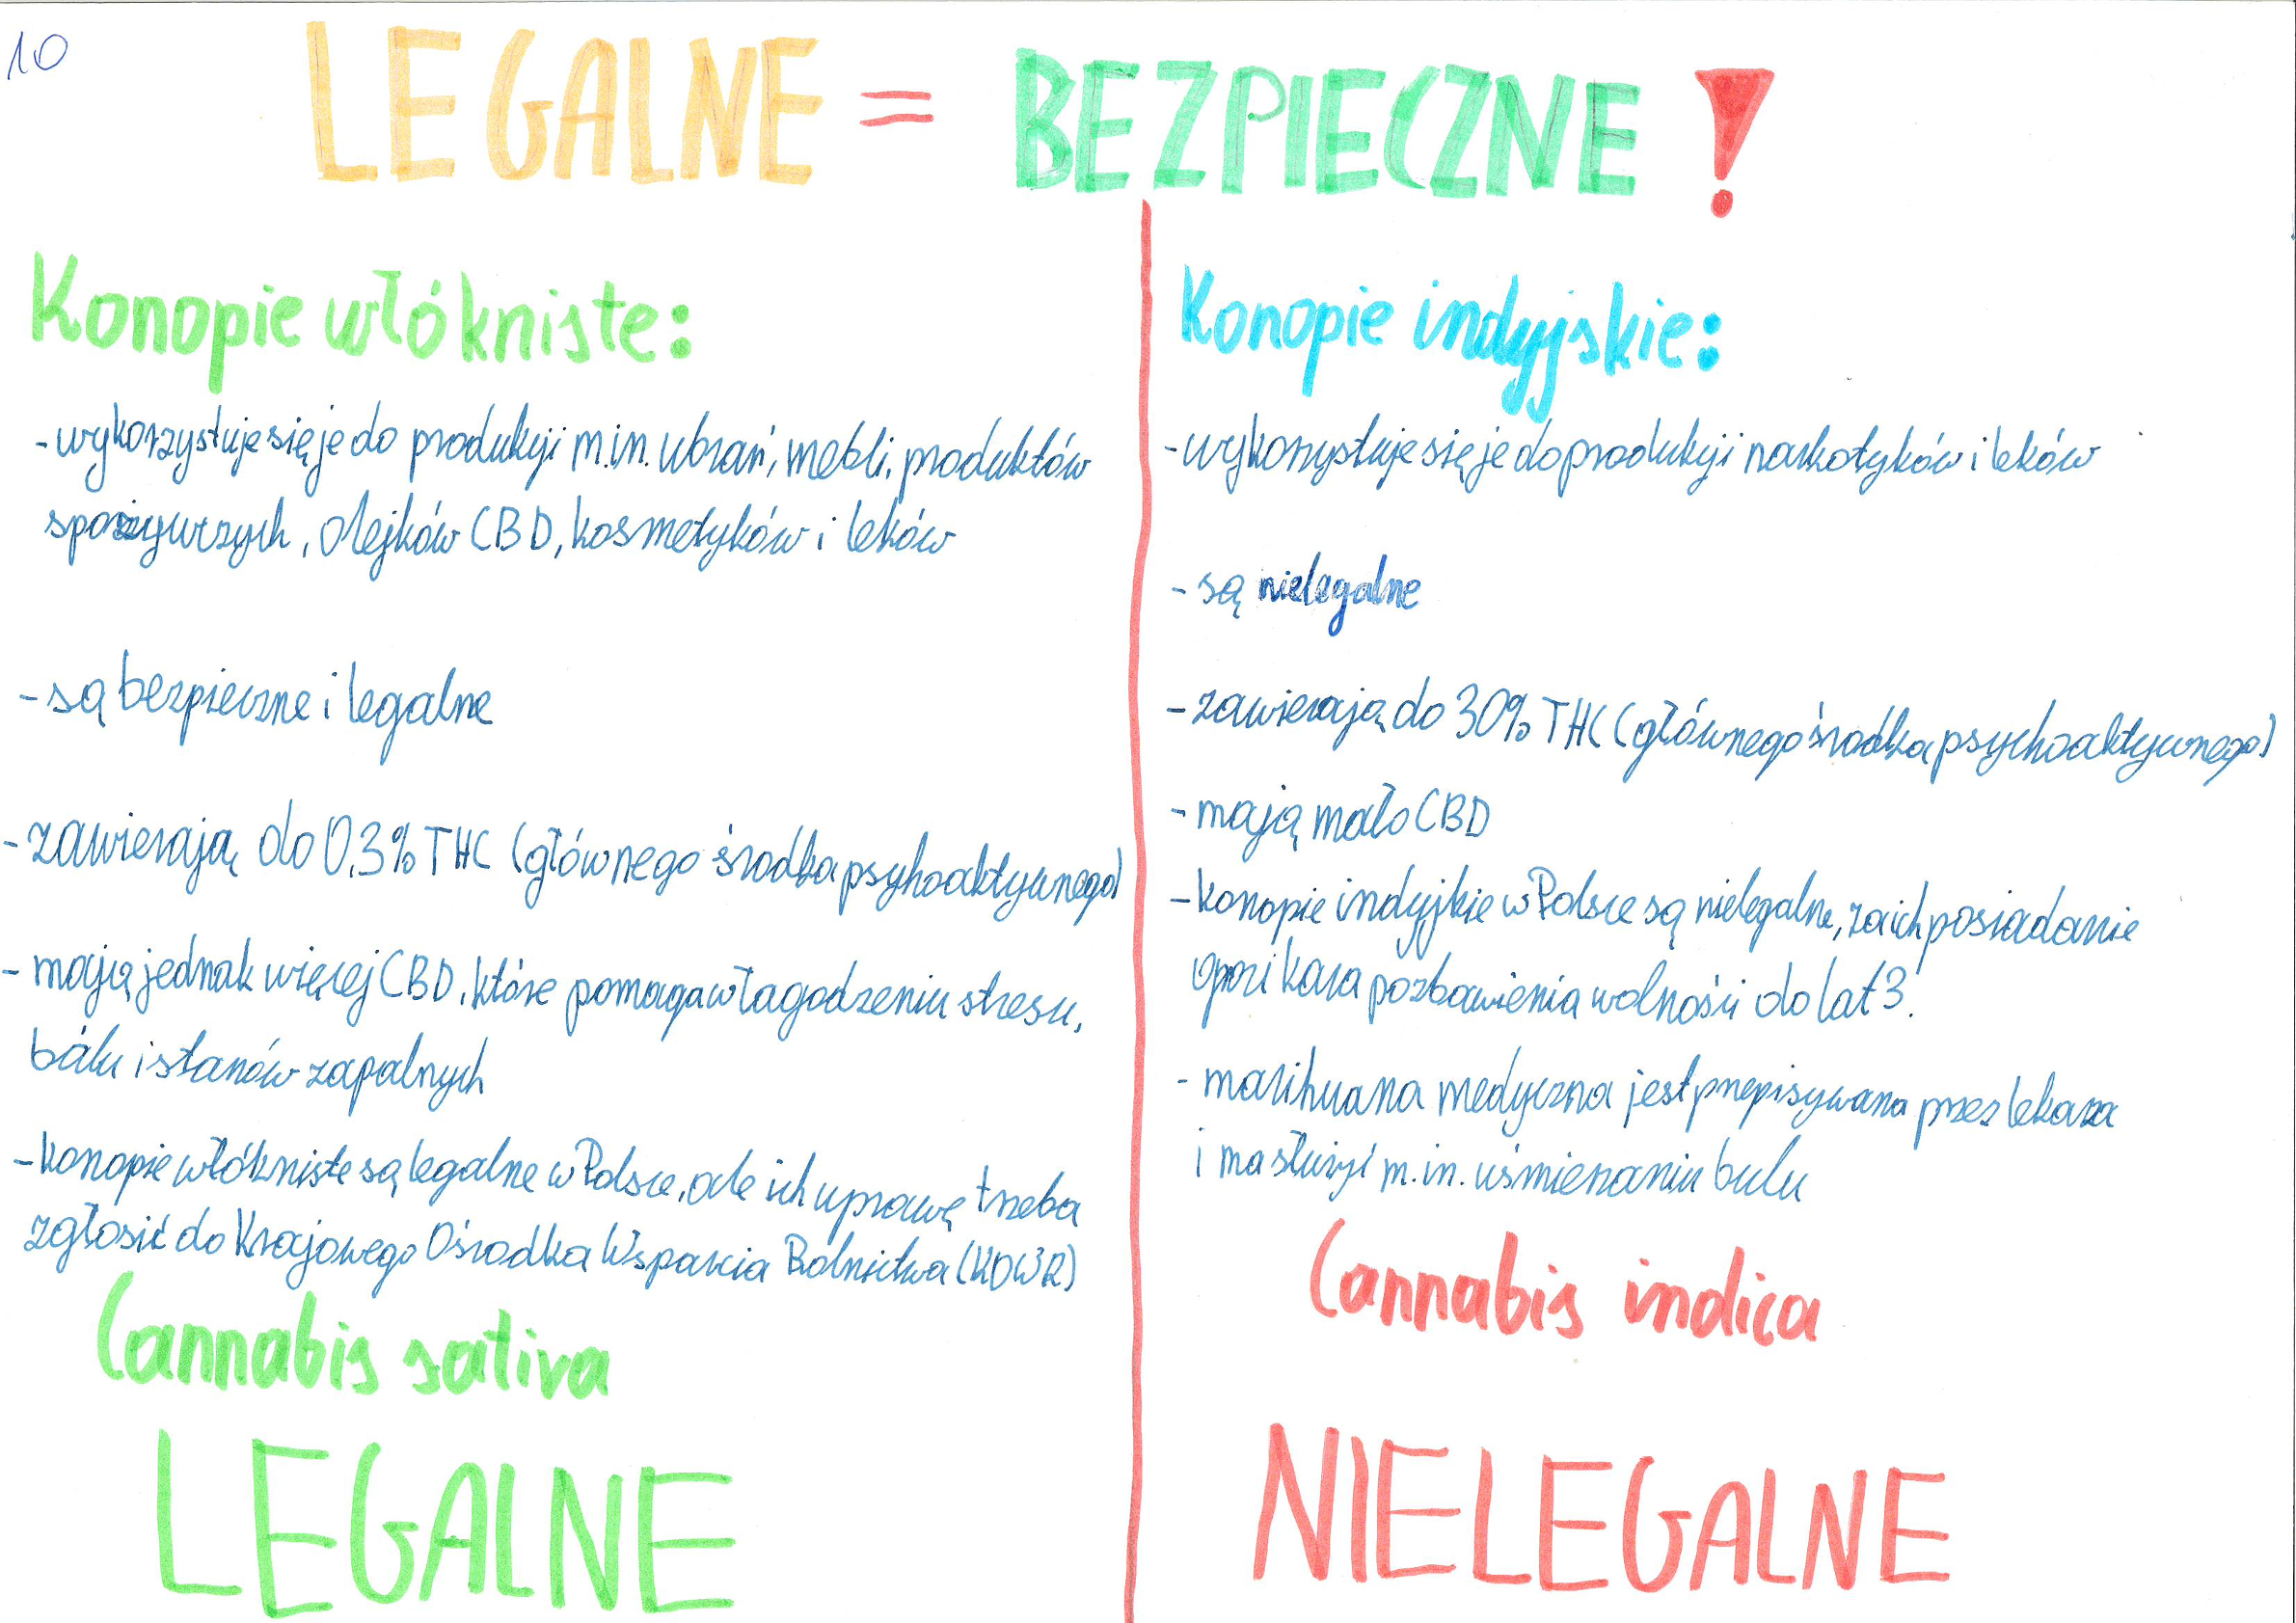 10
LEGALNE = BEZPIECZNE!
Konopie włókniste:
- wykorzystuje się je do produkcji m.in. ubrań, mebli, produktów
spożywczych, olejków CBD, kosmetyków i leków
- są bezpieczne i legalne
- zawierają do 0,3% THC (głównego środka psyhoaktywnego)
- mają jednak więcej CBD, które pomaga w łagodzeniu stresu,
bólu i stanów zapalnych
- konopie włókniste są legalne w Polsce, ale ich uprawę trzeba
zgłosić do Krajowego Ośrodka Wsparcia Rolnictwa (KOWR)
Cannabis sativa
LEGALNE
Konopie indyjskie:
- wykorzystuje się je do produkcji narkotyków i leków
- są nielegalne
- zawierają do 30% THC (głównego środka psychoaktywnego)
- mają mało CBD
- konopie indyjkie w Polsce są nielegalne, za ich posiadanie
grozi kara pozbawienia wolności do lat 3.
- marihuana medyczna jest przepisywana przez lekarza
i ma służyć m.in. uśmierzaniu bulu
Cannabis indica
NIELEGALNE